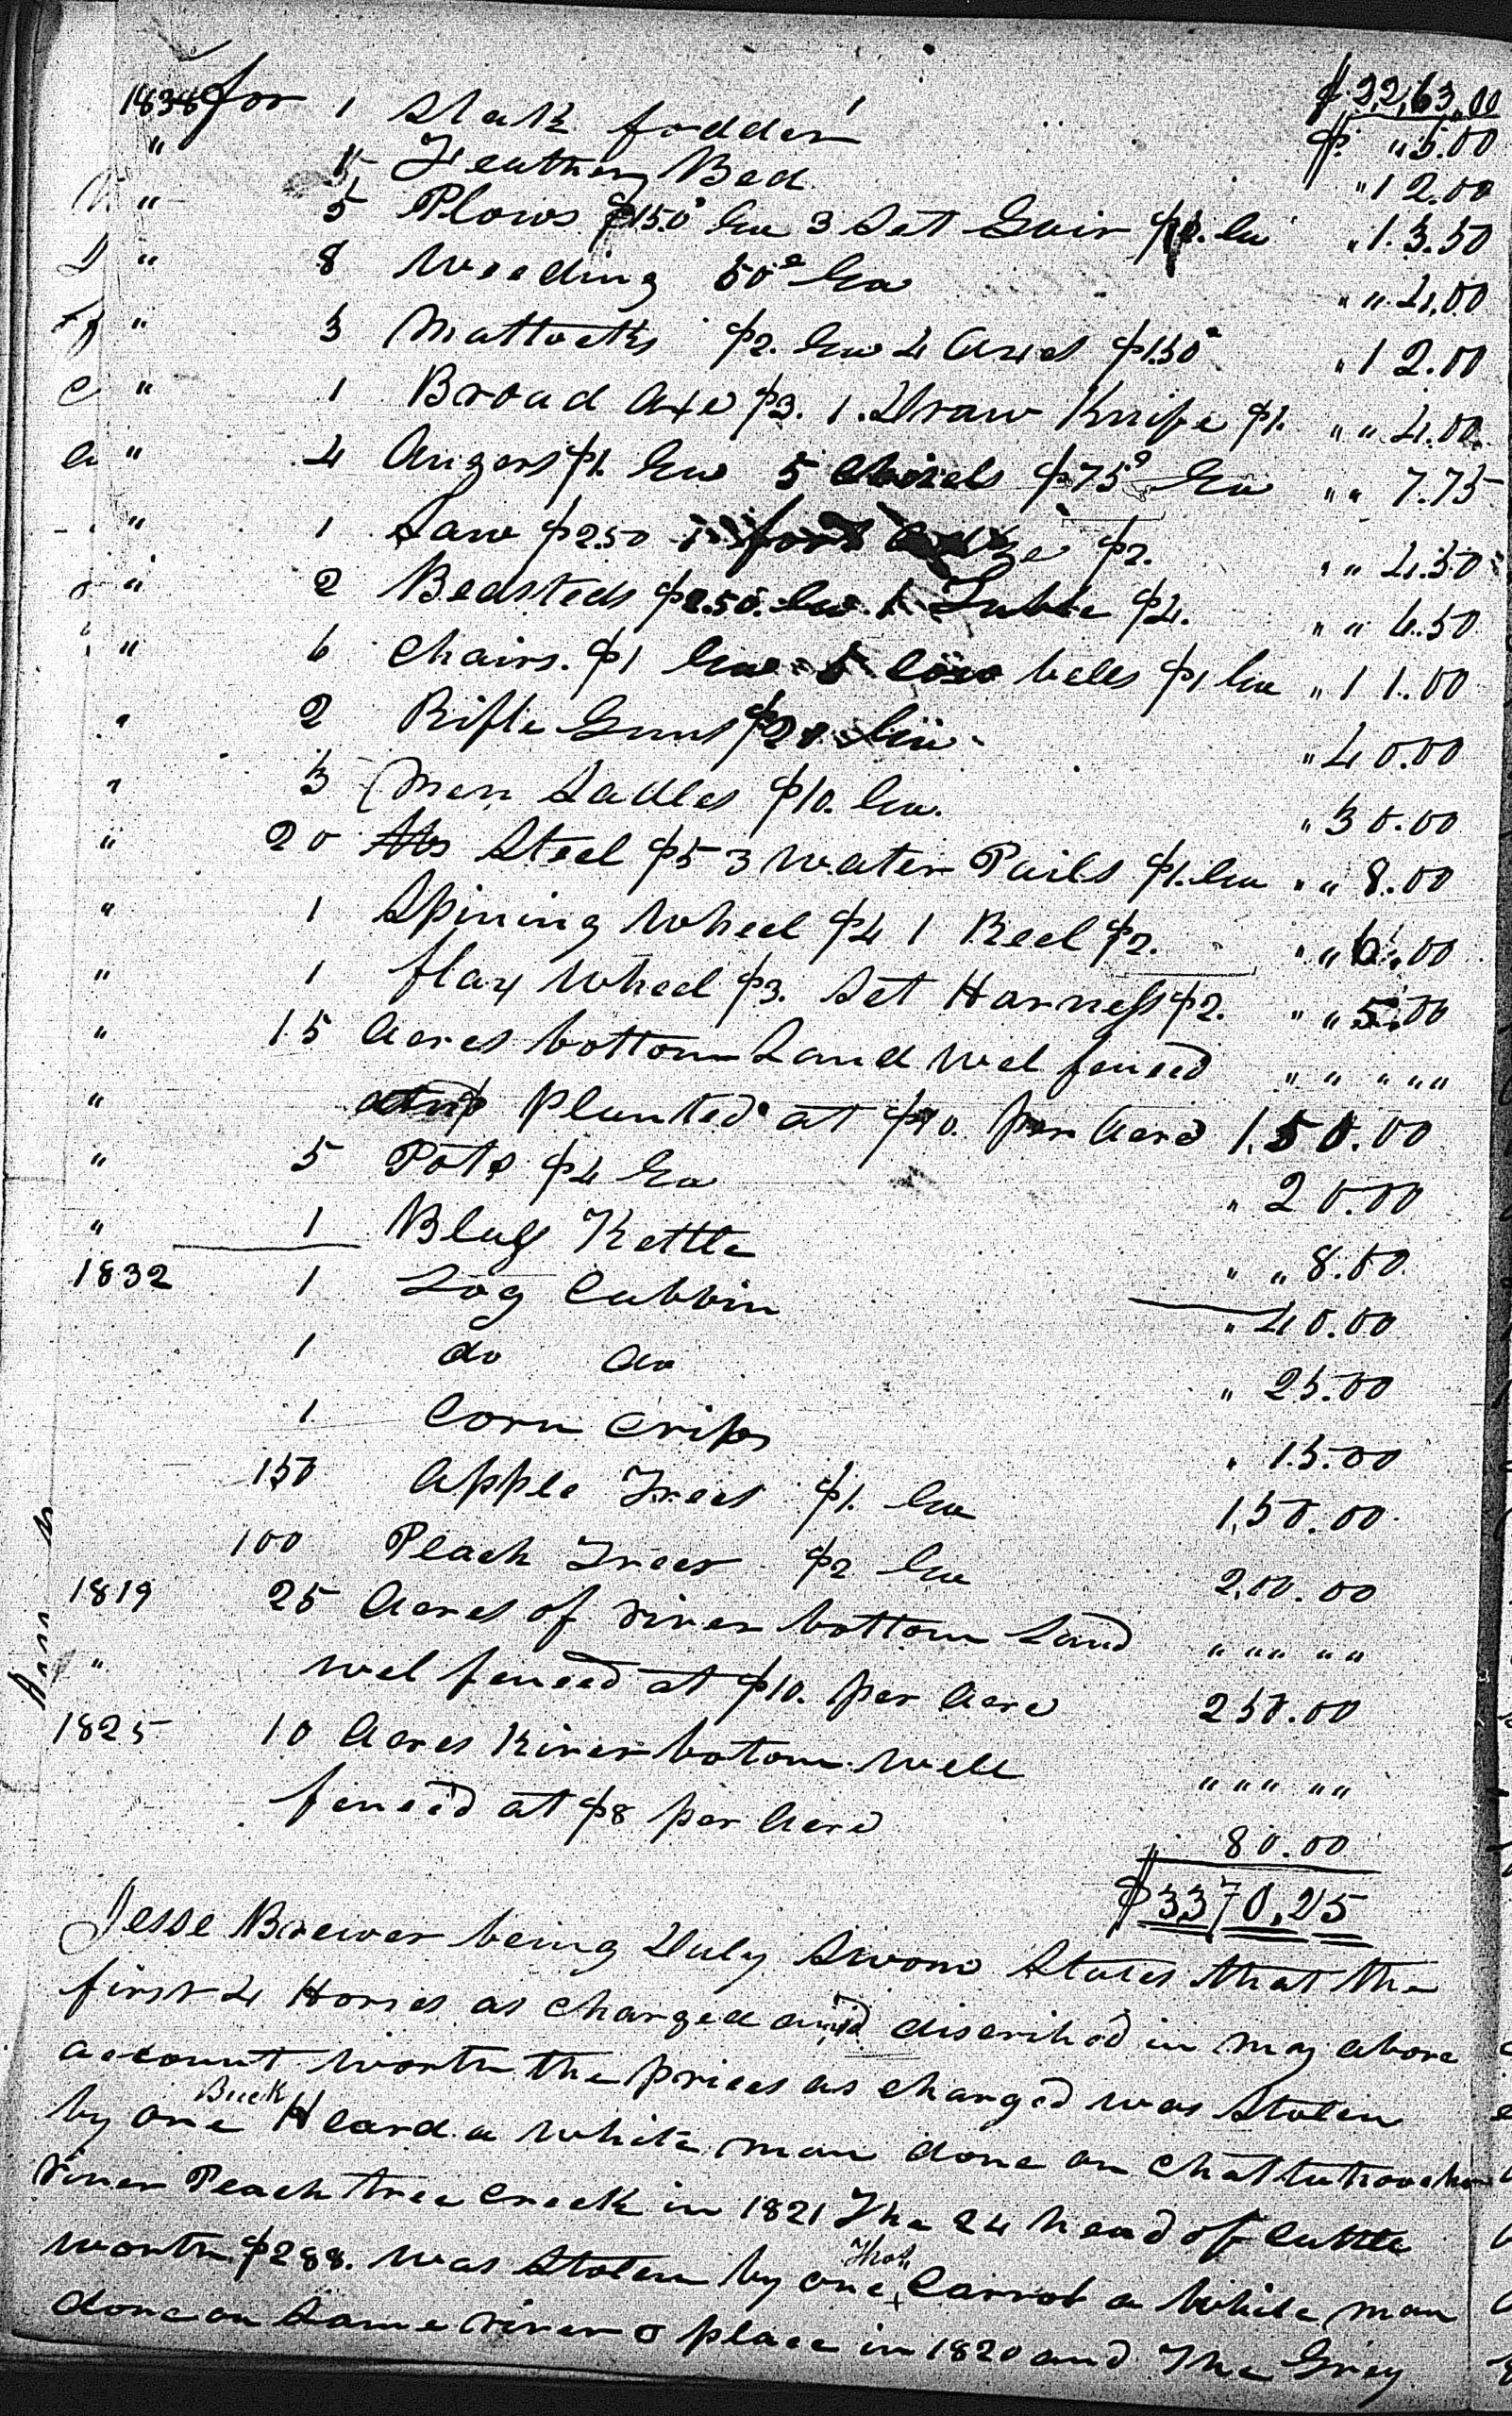 $2,263.00
1838 for 1 Stack fodder $ " 5.00
" 1 Feather Bed " 12.00
" 5 Plows $1.50 Ea 3 Set Gair $2. Ea " 13.50
" 8 Weeding 50c Ea " " 4.00
" 3 Mattocks $2. Ea 4 Axes $1.50 " 12.00
" 1 Broad Axe $3. 1 Draw Knife $1. " " 4.00
" 4 Augers $1. Ea 5 Chisels $75c Ea " " 7.75
" 1 Saw $2.50 1 foot Adze $2. " " 4.50
" 2 Bedsteds Ea 1 Table $4. " " 6.50
" 6 Chairs. $1 Ea 5 Cow bells $1 Ea " 11.00
" 2 Rifle Guns $20 Ea " 40.00
" 3 Men Sadles $10. Ea. " 30.00
" 20 lbs Steel $5 3 Water Pails $1. Ea " " 8.00
" 1 Spining Wheel $4 1 Reel $2. " " 6.00
" 1 flax Wheel $3. Set Harness $2. " " 5.00
" 15 Acres bottom Land wel fenced " " " " "
" and planted at $10. per Acre 150.00
" 5 Pots $4 Ea " 20.00
" 1 Kettle " " 8.00
1832 1 Log Cabbin " 40.00
1 do do " 25.00
1 Corn Crib " 15.00
150 Apple Trees $1. Ea 150.00
100 Peach Trees $2 Ea 200.00
1819 25 Acres of river bottom Land " " " " "
" wel fenced at $10. per Acre 250.00
1825 10 Acres River botom well " " " " "
fenced at $8 per Acre 80.00
$3370,25
Jesse Brewer being Duly Sworn States that the
first 4 Horses as charged and discribed in my above
account worth the prices as charged was Stolen
by one Buck Heard a white man done on Chattahoochee
river Peach tree Creek in 1821 The 24 head of Cattle
worth $288. was Stolen by one Thos Carrol a White man
done on Same river & place in 1820 and The Grey